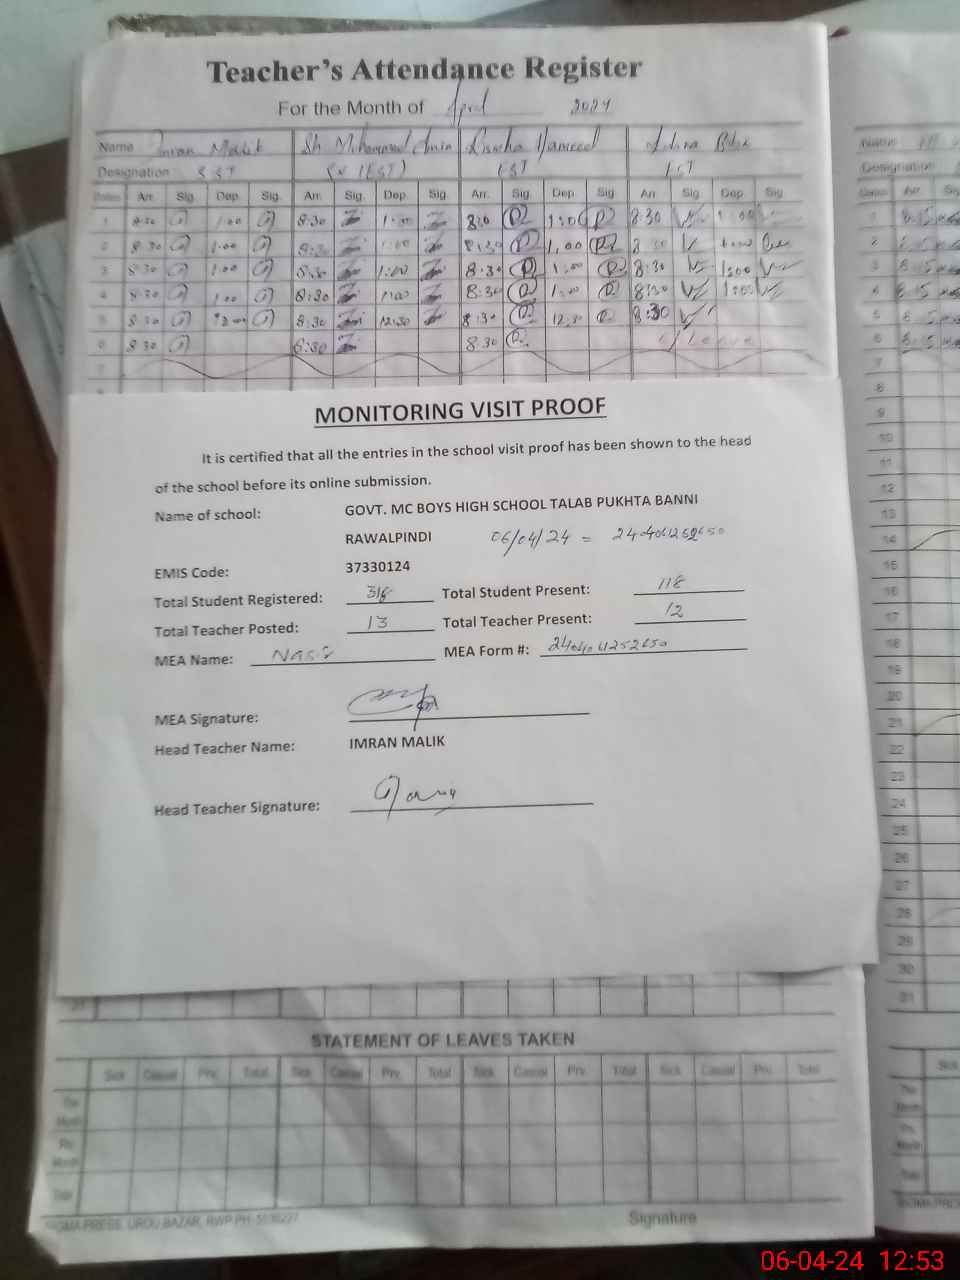 Teacher's Attendance Register
For the Month of April 2024
Name Imran Malik Sh Mohammad Amin Hameed
Designation SST (EST) EST EST
Dates Arr. Sig. Dep. Sig. Arr. Sig. Dep. Sig. Arr. Sig. Dep. Sig. Arr Sig. Dep. Sig
1 8:30 1:00 8:30 1:00 8:30 1:00 8:30 1:00
2 8:30 1:00 8:30 1:00 8:30 1:00 8:30 1:00
3 8:30 1:00 8:30 1:00 8:30 1:00 8:30 1:00
4 8:30 1:00 8:30 1:00 8:30 1:00 8:30 1:00
5 8:30 8:30 12:30 8:30 12:30 8:30
6 8:30 8:30 8:30 C/Leave
7
MONITORING VISIT PROOF
It is certified that all the entries in the school visit proof has been shown to the head
of the school before its online submission.
Name of school: GOVT. MC BOYS HIGH SCHOOL TALAB PUKHTA BANNI
RAWALPINDI 06/04/24 =
EMIS Code: 37330124
Total Student Registered: 318 Total Student Present: 118
Total Teacher Posted: 13 Total Teacher Present: 12
MEA Name: Nasir MEA Form #:
MEA Signature:
Head Teacher Name: IMRAN MALIK
Head Teacher Signature:
31
STATEMENT OF LEAVES TAKEN
Sick Casual Prv. Total Sick Casual Prv. Total Sick Casual Prv. Total Sick Casual Prv. Total
The Month
Prv. Month
Total
SIGMA PRESS, URDU BAZAR, RWP PH:
Signature
Name
Designation
Dates Arr Sig
1 8:15
2 8:15
3 8:15
4 8:15
5 8:15
6 8:15
7
8
9
10
11
12
13
14
15
16
17
18
19
20
21
22
23
24
25
26
27
28
29
30
31
Sick
The Month
Prv. Month
Total
SIGMA PRESS
06-04-24 12:53